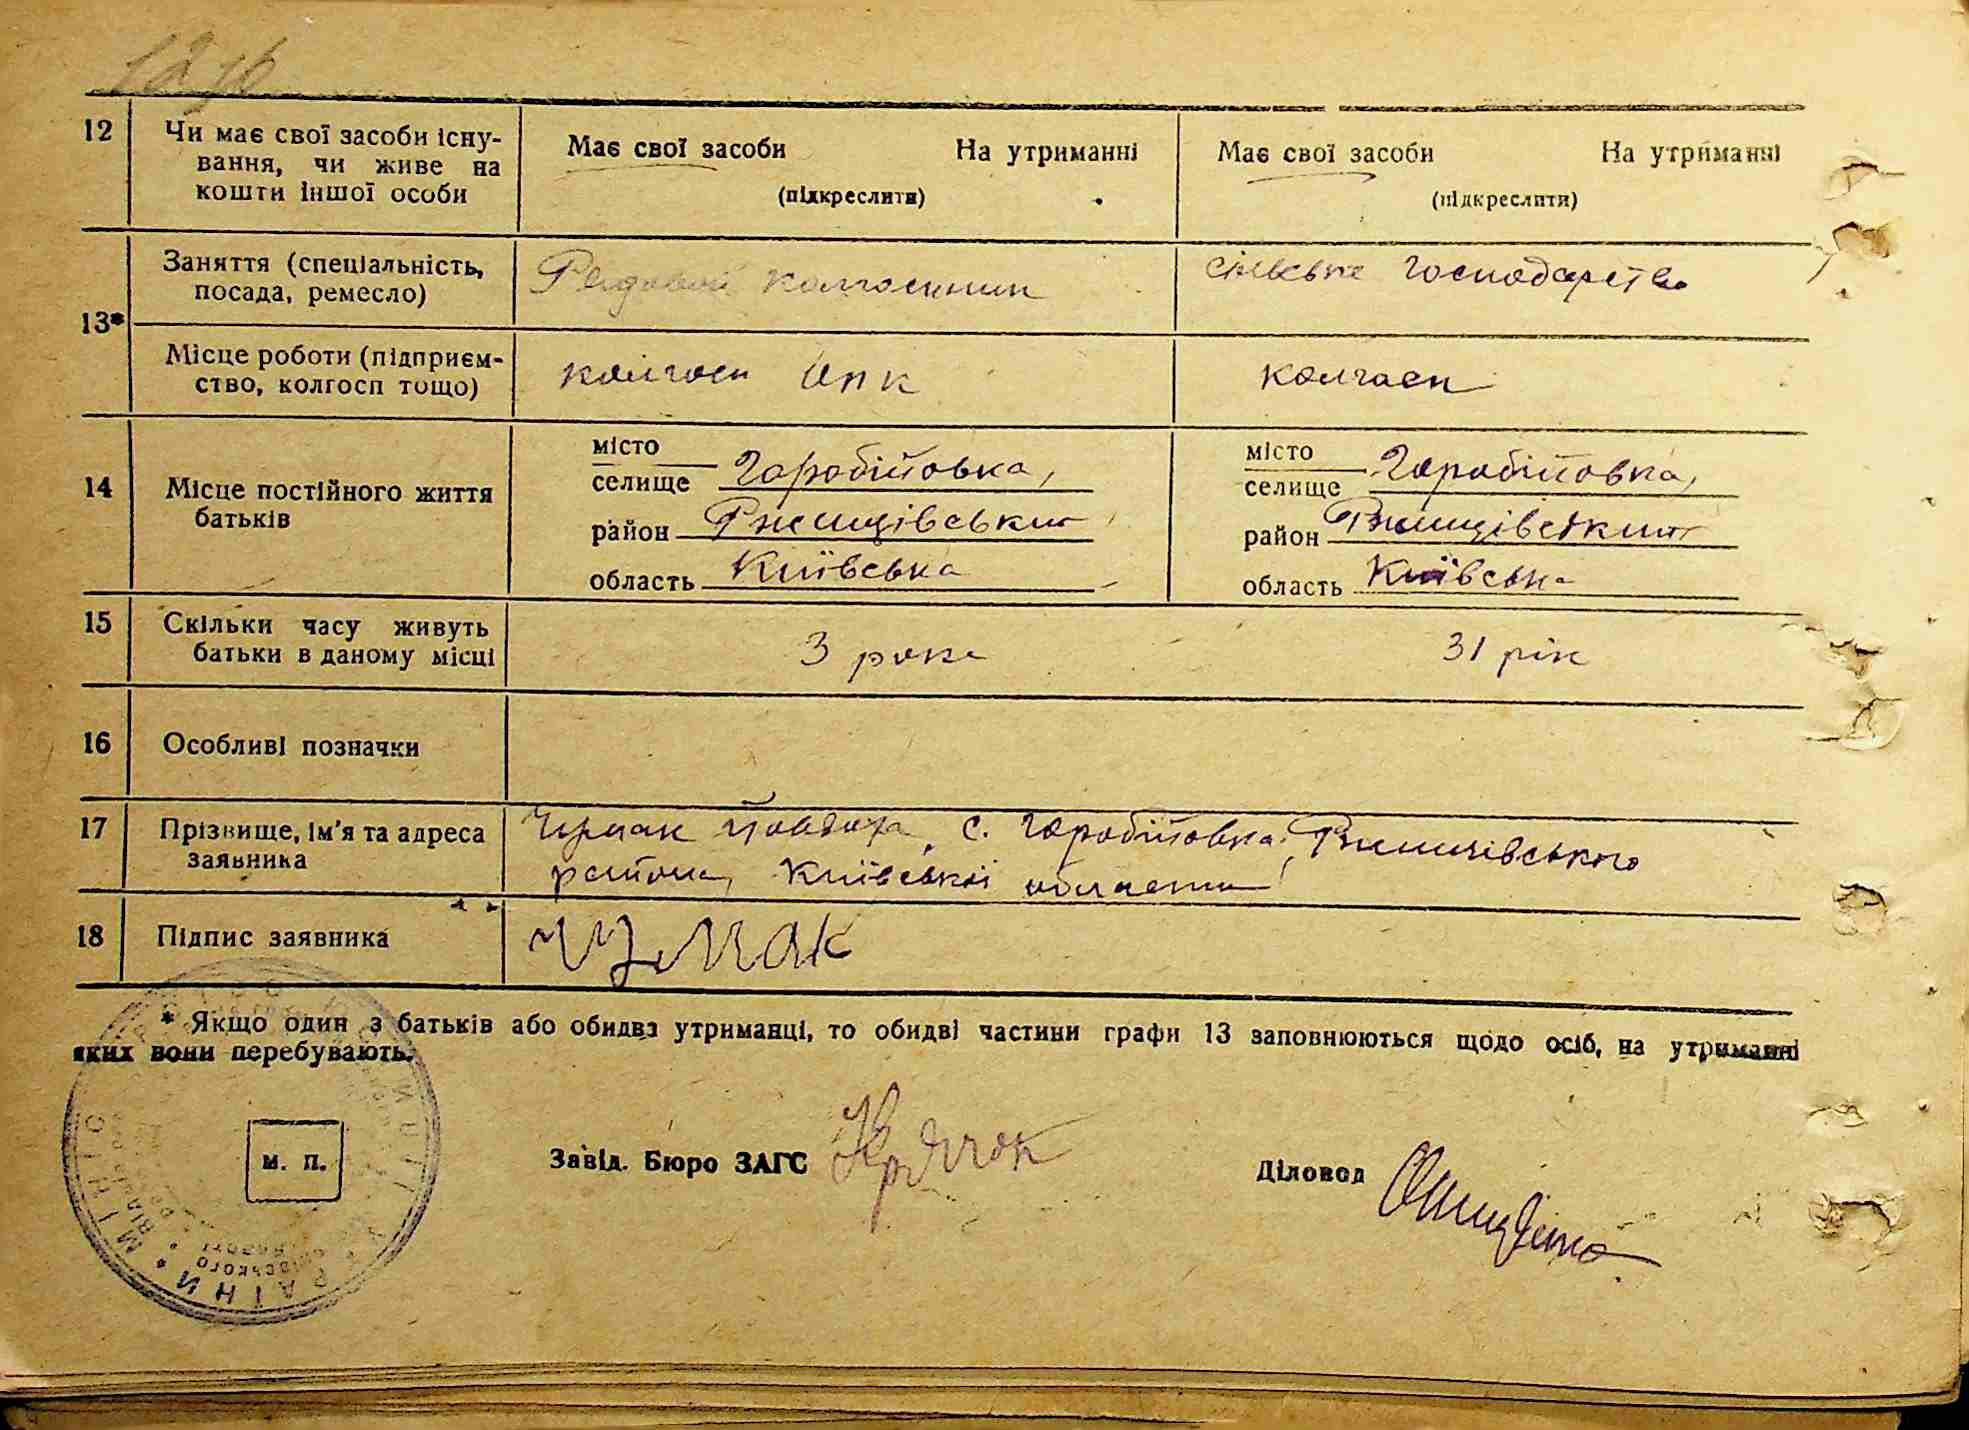 12
Чи має свої засоби існу-
вання, чи живе на
кошти іншої особи
Має свої засоби На утриманні
(підкреслити)
Має свої засоби На утриманні
(підкреслити)
13*
Заняття (спеціальність,
посада, ремесло)
Рядовой колгоспник
сільське господарство
Місце роботи (підприєм-
ство, колгосп тощо)
колгосп
колгосп
14
Місце постійного життя
батьків
місто
селище Горобіївка,
район Ржищівський
область Київська
місто
селище Горобіївка,
район Ржищівський
область Київська
15
Скільки часу живуть
батьки в даному місці
3 роки
31 рік
16
Особливі позначки
17
Прізвище, ім'я та адреса
заявника
с. Горобіївка, Ржищівського
района, Київської области
18
Підпис заявника
* Якщо один з батьків або обидва утриманці, то обидві частини графи 13 заповнюються щодо осіб, на утриманні
яких вони перебувають.
М. П.
Завід. Бюро ЗАГС
Діловод